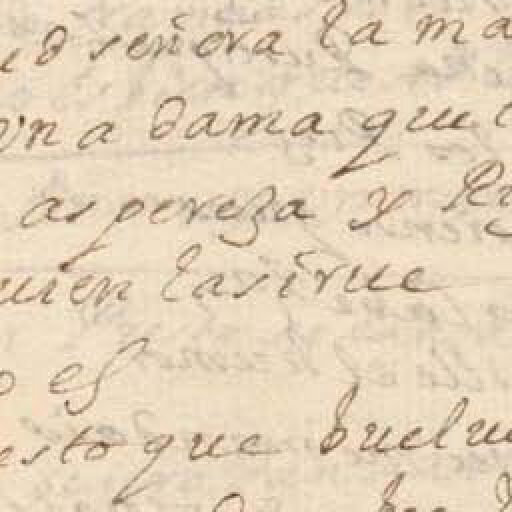 ud señora la ma
vna dama que
aspereza y Ri
uien la sirue
o es
esto que buelu